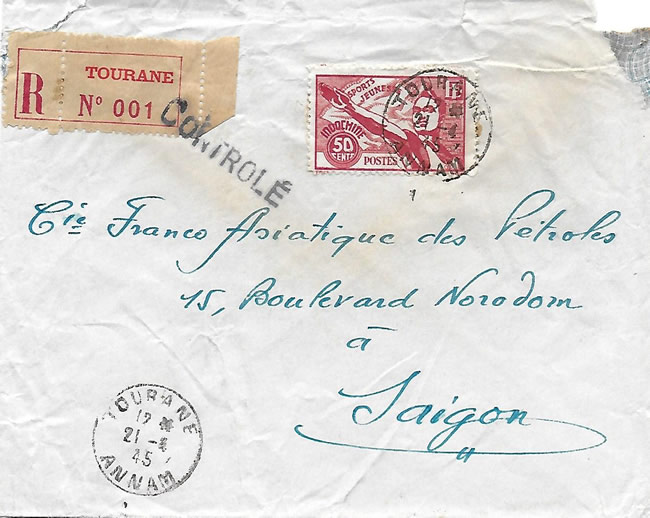 R TOURANE
Nº 001
CONTROLÉ
SPORTS
JEUNES
INDOCHINE
50
CENTS
POSTES
TOURANE
21 -4
45
ANNAM
1
Cie Franco Asiatique des Pétroles
15, Boulevard Norodom
à
Saigon
TOURANE
12 *
21 -4
45
ANNAM